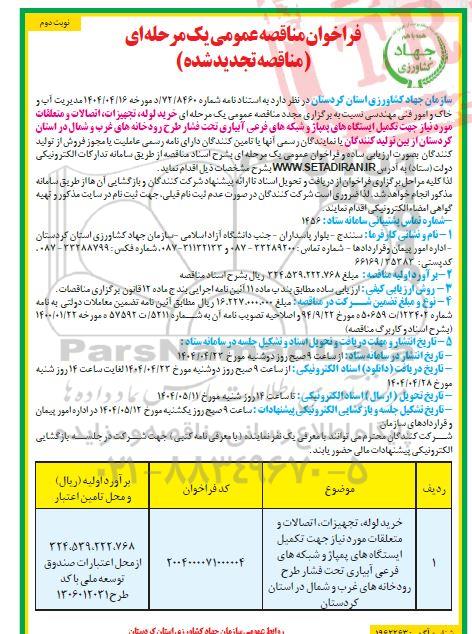 نوبت دوم
فراخوان مناقصه عمومی یک مرحله ای
(مناقصه تجدید شده)
جهاد
کشاورزی
سازمان جهاد کشاورزی استان کردستان در نظر دارد به استناد نامه شماره ۷۲/۸۴۶۰/د مورخه ۱۴۰۴/۰۴/۱۶ مدیریت آب و
خاک و امور فنی مهندسی نسبت به برگزاری مجدد مناقصه عمومی یک مرحله ای خرید لوله، تجهیزات، اتصالات و متعلقات
مورد نیاز جهت تکمیل ایستگاه های پمپاژ و شبکه های فرعی آبیاری تحت فشار طرح رودخانه های غرب و شمال در استان
کردستان از بین تولید کنندگان یا نمایندگان رسمی آنها یا تامین کنندگان دارای نامه رسمی عاملیت یا مجوز فروش از تولید
کنندگان بصورت ارزیابی ساده و فراخوان عمومی یک مرحله ای بشرح اسناد مناقصه از طریق سامانه تدارکات الکترونیکی
دولت (ستاد) به آدرس WWW.SETADIRAN.IR بشرح مشخصات ذیل اقدام نماید.
لذا کلیه مراحل برگزاری فراخوان از دریافت و تحویل اسناد تا ارائه پیشنهاد شرکت کنندگان و بازگشایی آن ها از طریق سامانه
مذکور انجام خواهد شد. لذا ضروری است شرکت کنندگان در صورت عدم ثبت نام قبلی، جهت ثبت نام در سایت مذکور و تهیه
گواهی امضاء الکترونیکی اقدام نمایند.
-شماره تماس پشتیبانی سامانه ستاد: ۱۴۵۶
۱- نام و نشانی کارفرما: سنندج - بلوار پاسداران - جنب دانشگاه آزاد اسلامی - سازمان جهاد کشاورزی استان کردستان
- اداره امور پیمان و قراردادها - شماره تماس: ۳۳۲۸۹۲۰۰-۰۸۷ و ۳۱۱۳۲۱۲۳-۰۸۷، شماره فکس: ۳۳۲۸۸۷۹۹-۰۸۷
کدپستی: ۳۵۳۸۳/۶۶۱۶۹
۲- برآورد اولیه مناقصه: مبلغ ۳۲۴.۵۳۹.۲۲۲.۷۶۸ ریال بشرح اسناد مناقصه
۳- روش ارزیابی کیفی: ارزیابی ساده مطابق بند ب ماده ۱۱ آئین نامه اجرایی بند ج ماده ۱۲ قانون برگزاری مناقصات.
۴- نوع و مبلغ تضمین شرکت در مناقصه: مبلغ ۱۶.۲۲۷.۰۰۰.۰۰۰ ریال مطابق آئین نامه تضمین معاملات دولتی به نامه
شماره ۱۲۳۴۰۲/ت ۵۰۶۵۹ ه مورخ ۹۴/۹/۲۲ و اصلاحیه تصویب نامه آن به شماره ۵۲۱۱/ت ۵۷۵۹۲ ه مورخ ۱۴۰۰/۰۱/۲۲
(بشرح اسناد و کاربرگ مناقصه)
۵- تاریخ انتشار و مهلت دریافت و تحویل اسناد و تشکیل جلسه در سامانه ستاد:
- تاریخ انتشار در سامانه ستاد: از ساعت ۹ صبح روز دوشنبه مورخ ۱۴۰۴/۰۴/۲۳
- تاریخ دریافت (دانلود) اسناد الکترونیکی: از ساعت ۹ صبح روز دوشنبه مورخ ۱۴۰۴/۰۴/۲۳ لغایت ساعت ۱۴ روز شنبه
مورخ ۱۴۰۴/۰۴/۲۸
- تاریخ تحویل (ارسال) اسناد الکترونیکی: تا ساعت ۱۴ روز شنبه مورخ ۱۴۰۴/۰۵/۱۱
-تاریخ تشکیل جلسه و بازگشایی الکترونیکی پیشنهادات: ساعت ۹ صبح روز یکشنبه مورخ ۱۴۰۴/۰۵/۱۲ در اداره امور پیمان
و قراردادهای سازمان
شرکت کنندگان محترم می توانند با معرفی یک نفر نماینده (با معرفی نامه کتبی) جهت شرکت در جلسه بازگشایی
الکترونیکی پیشنهادات مالی حضور یابند.
ردیف
موضوع
کد فراخوان
برآورد اولیه (ریال)
و محل تامین اعتبار
۱
خرید لوله، تجهیزات، اتصالات و
متعلقات مورد نیاز جهت تکمیل
ایستگاه های پمپاژ و شبکه های
فرعی آبیاری تحت فشار طرح
رودخانه های غرب و شمال در استان
کردستان
۲۰۰۴۰۰۰۰۷۱۰۰۰۰۰۴
۳۲۴.۵۳۹.۲۲۲.۷۶۸
از محل اعتبارات صندوق
توسعه ملی با کد
طرح ۱۳۰۶۰۱۲۰۳۱
۰۲۱-۸۸۳۴۹۶۷۰-۵
روابط عمومی سازمان جهاد کشاورزی استان کردستان